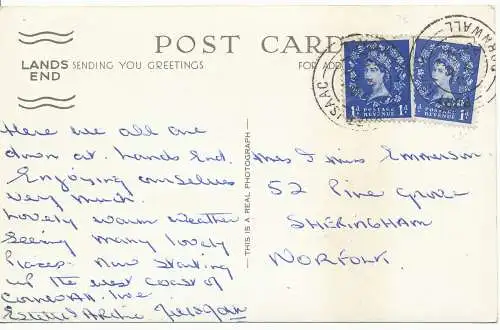 POST CARD
LANDS
END
SENDING YOU GREETINGS
FOR ADD
ISAAC
CORNWALL
1d POSTAGE REVENUE 1d
POSTAGE REVENUE 1d
THIS IS A REAL PHOTOGRAPH
Here we all are
down at Lands End.
Enjoying ourselves
very much.
Lovely warm weather
seeing many lovely
places. Now starting
up the west coast of
Cornwall. love
Estelle Archie
Mrs & Miss Emmerson
52 Pine Grove
SHERINGHAM
NORFOLK.